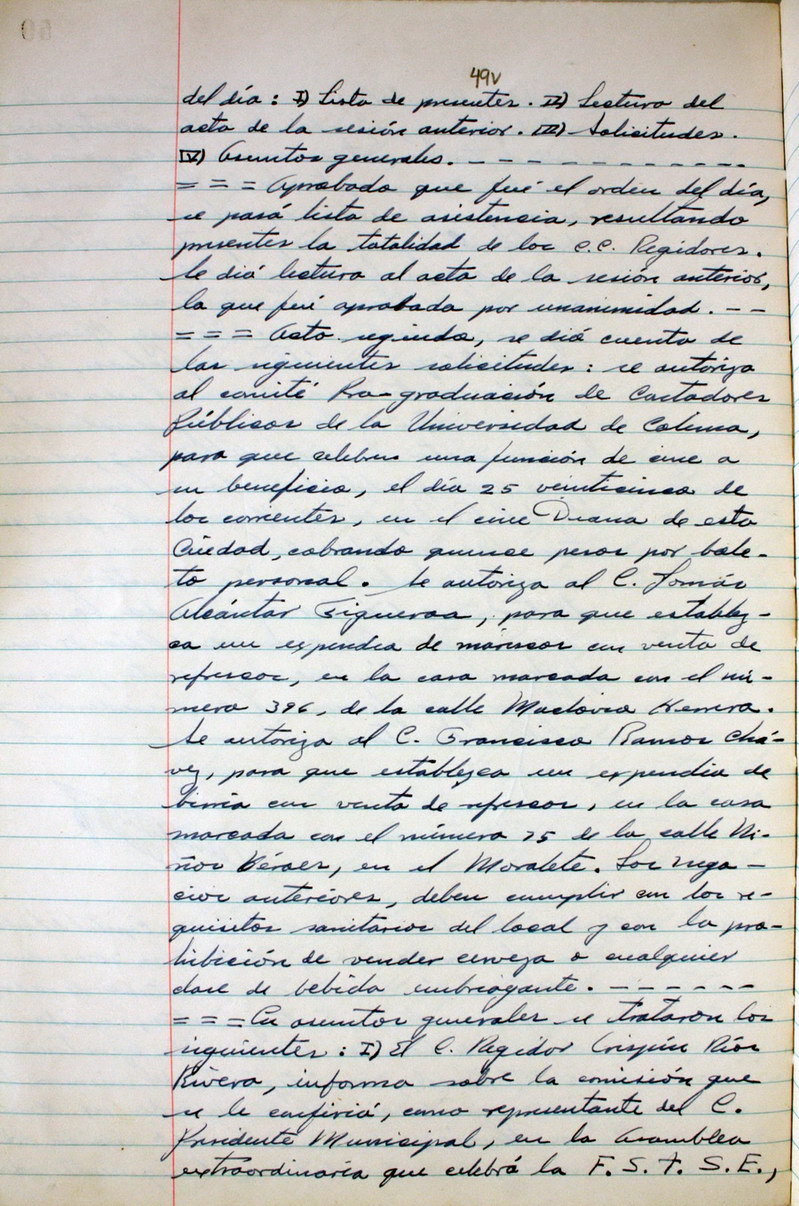 49v
del día: I) Lista de presentes. II) Lectura del
acta de la sesión anterior. III) Solicitudes.
IV) Asuntos generales. - - - - - - - - - - - -
= = = Aprobado que fué el orden del día,
se pasó lista de asistencia, resultando
presentes la totalidad de los C.C. Regidores.
Se dió lectura al acta de la sesión anterior,
la que fué aprobada por unanimidad. - -
= = = Acto seguido, se dió cuenta de
las siguientes solicitudes: se autoriza
al comité Pro-graduación de Contadores
Públicos de la Universidad de Colima,
para que celebren una función de cine a
su beneficio, el día 25 veinticinco de
los corrientes, en el cine Diana de esta
Ciudad, cobrando quince pesos por bole-
to personal. Se autoriza al C. Tomás
Alcántar Figueroa, para que establez-
ca un expendio de mariscos con venta de
refrescos, en la casa marcada con el nú-
mero 396, de la calle Maclovio Herrera.
Se autoriza al C. Francisco Ramos Chá-
vez, para que establezca un expendio de
birria con venta de refrescos, en la casa
marcada con el número 75 de la calle Ni-
ños Héroes, en el Moralete. Los nego-
cios anteriores, deben cumplir con los re-
quisitos sanitarios del local y con la pro-
hibición de vender cerveza o cualquier
clase de bebida embriagante. - - - - - -
= = = En asuntos generales se trataron los
siguientes: I) El C. Regidor Crispín Ríos
Rivera, informa sobre la comisión que
se le confirió, como representante del C.
Presidente Municipal, en la Asamblea
extraordinaria que celebró la F. S. T. S. E.,